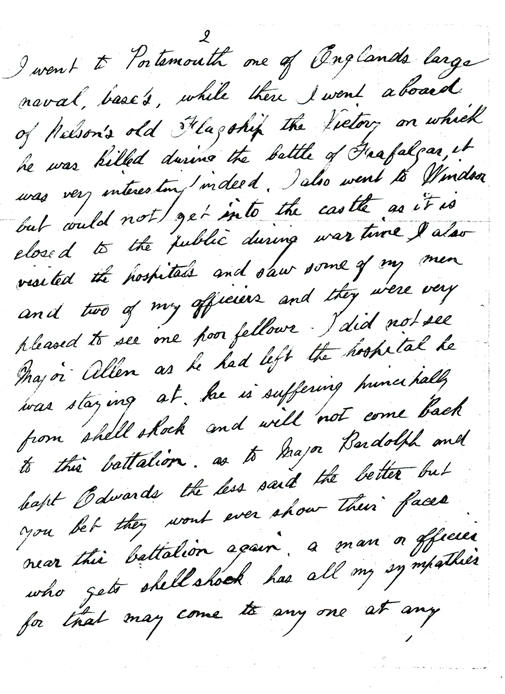 2
I went to Portsmouth one of Englands large
naval, base's, while there I went aboard
of Nelson's old Flagship the Victory on which
he was killed during the battle of Trafalgar, it
was very interesting indeed. I also went to Windsor
but could not get into the castle as it is
closed to the public during war time I also
visited the hospitals and saw some of my men
and two of my officiers and they were very
pleased to see me poor fellows. I did not see
Major Allen as he had left the hospital he
was staying at. he is suffering principally
from shell shock and will not come back
to this battalion. as to Major Bardolph and
Capt Edwards the less said the better but
you bet they wont ever show their faces
near this battalion again. a man or officier
who gets shell shock has all my sympathies
for that may come to any one at any